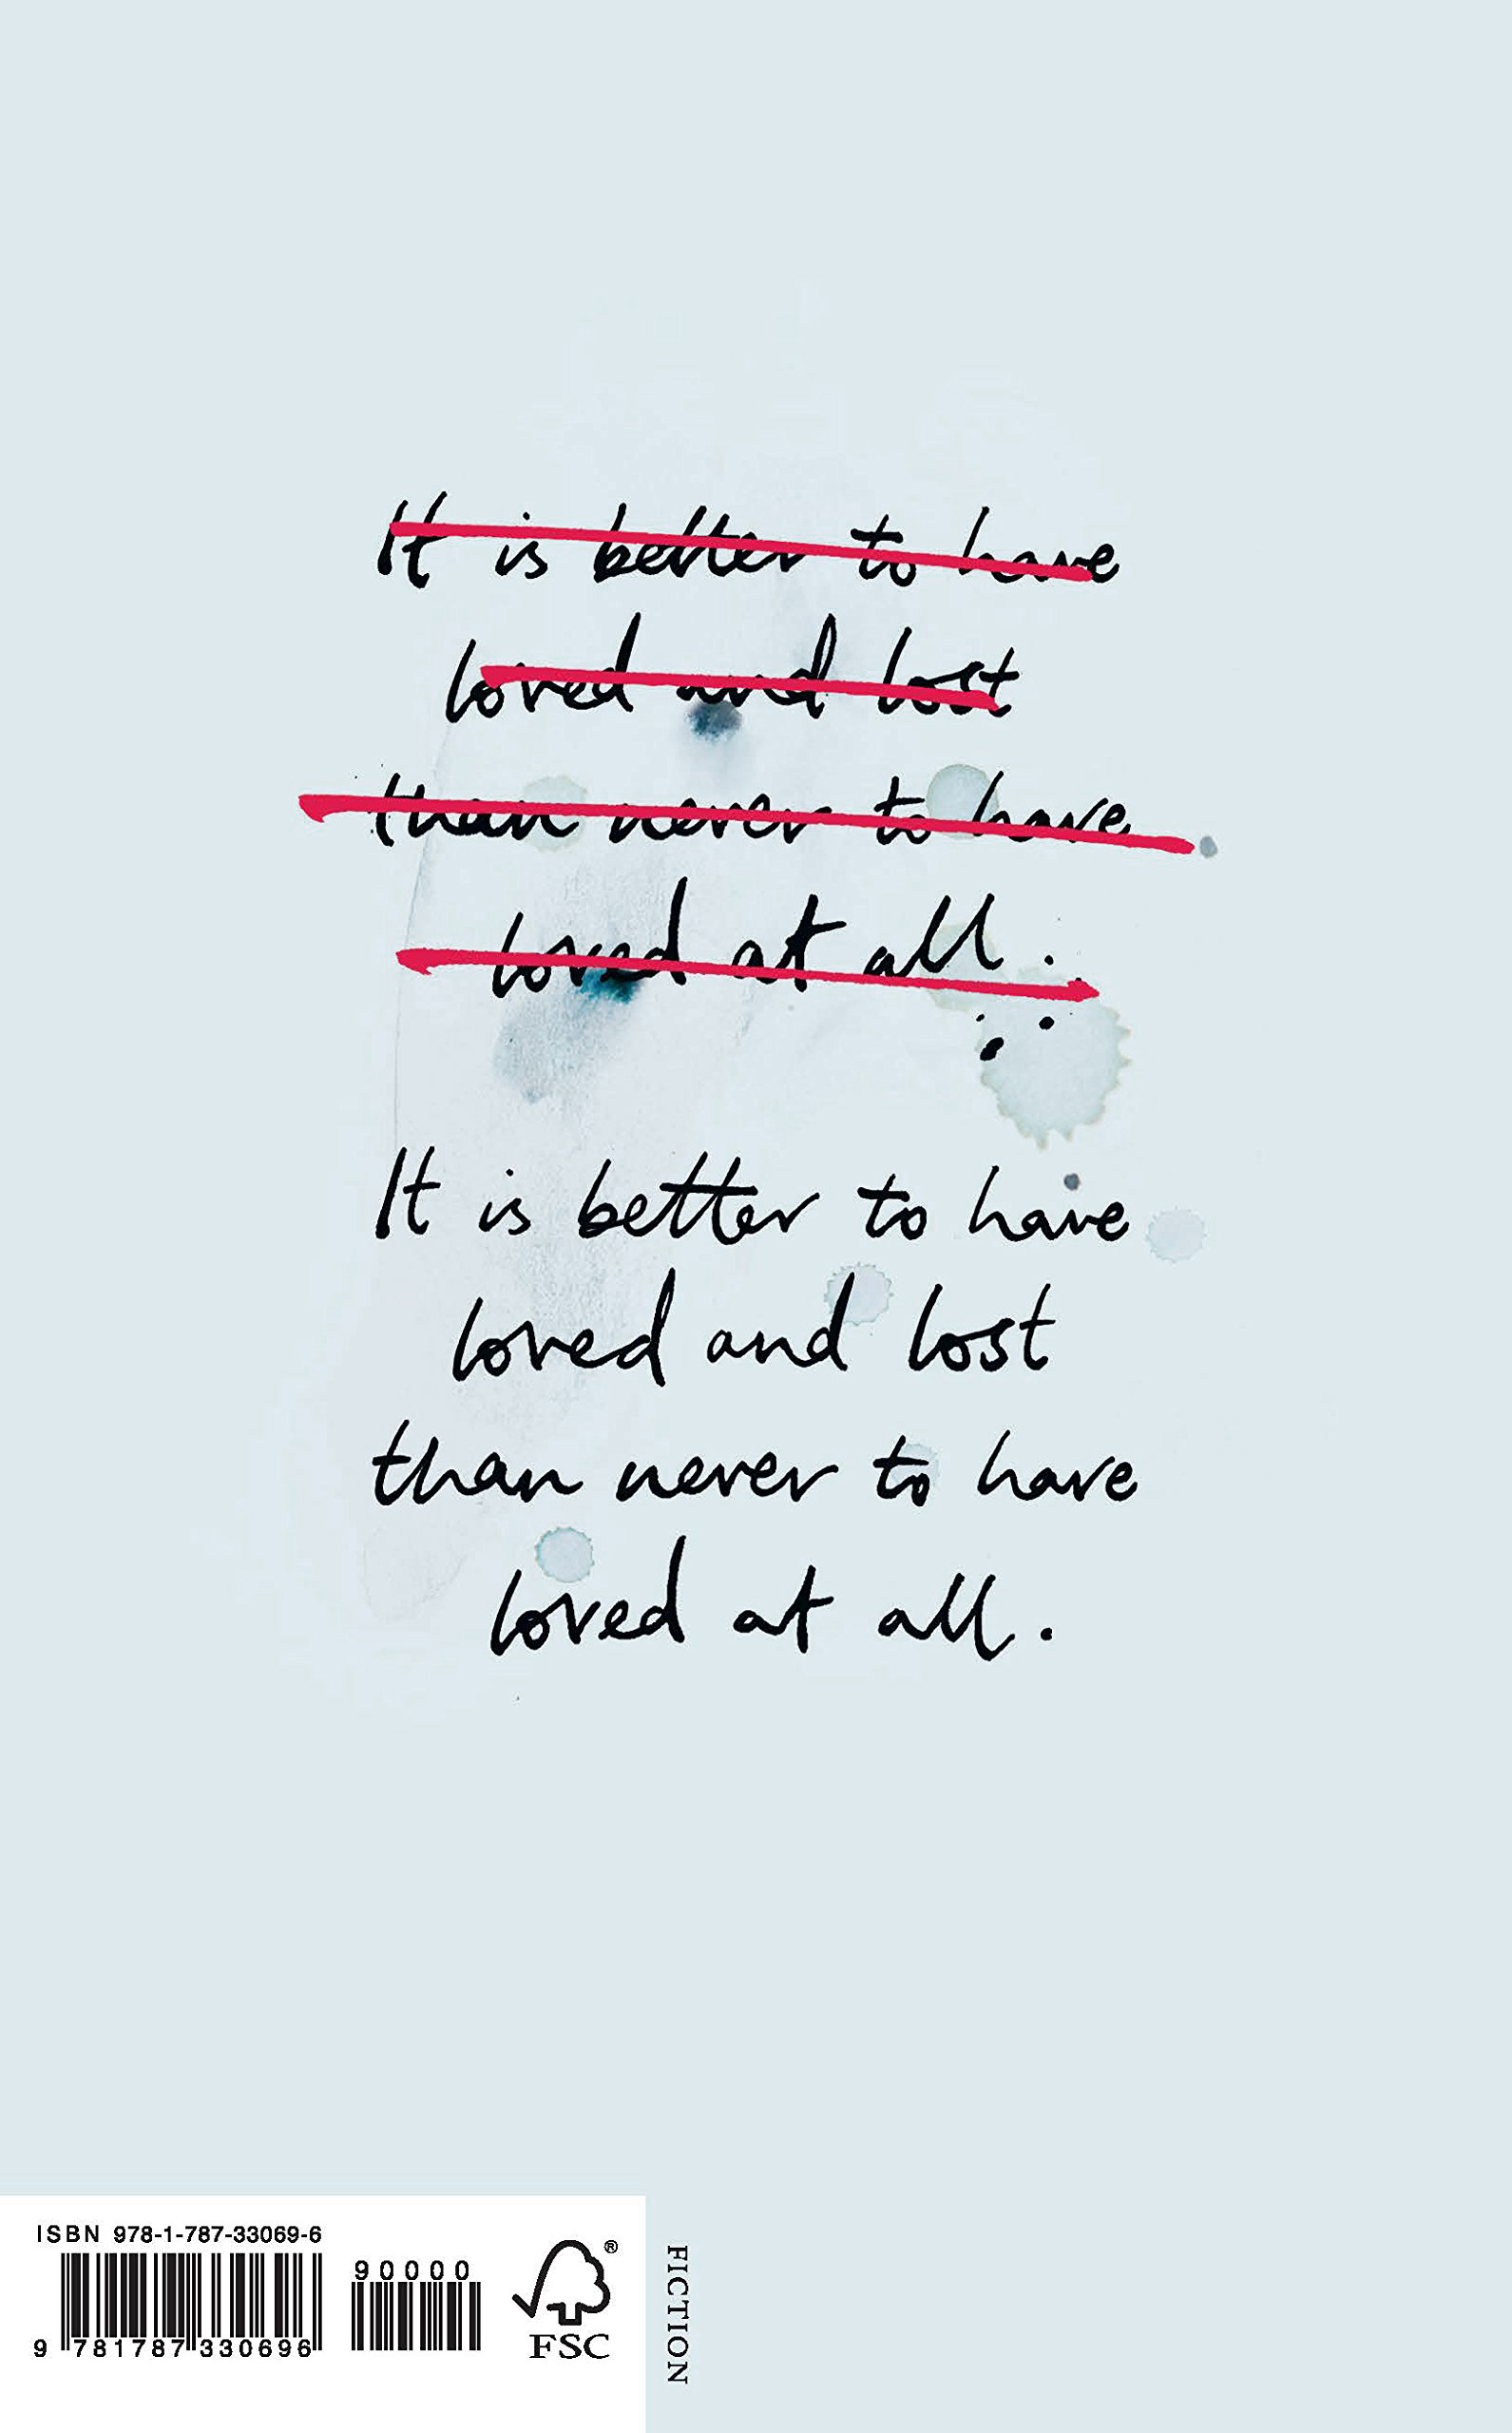 It is better to have
loved and lost
than never to have
loved at all.
It is better to have
loved and lost
than never to have
loved at all.
ISBN 978-1-787-33069-6
90000
9 781787 330696
®
FSC
FICTION